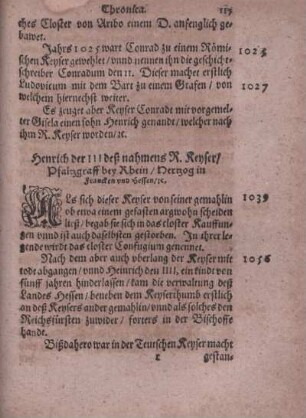 Chronica. 115
ches Closter von Aribo einem D. anfenglich ge-
bawet.
Jahrs 1025 wart Conrad zu einem Römi- 1025
schen Keyser gewehlet / vnnd nennen ihn die geschicht-
schreiber Conradum den II. Dieser machet erstlich
Ludovicum mit dem Bart zu einem Grafen / von 1027
welchem hiernechst weiter.
Es zeuget aber Keyser Conradt mit vorgemel-
ter Gisela einen sohn Henrich genandt / welcher nach
ihm R. Keyser worden / ꝛc.
Henrich der III deß nahmens R. Keyser /
Pfaltzgraff bey Rhein / Hertzog in
Francken vnd Hessen / ꝛc.
ALs sich dieser Keyser von seiner gemahlin 1039
ob etwa einem gefasten argwohn scheiden
ließ / begab sie sich in das closter Kauffun-
gen vnnd ist auch daselbsten gestorben. In ihrer le-
gende wirdt das closter Confugium genennet.
Nach dem aber auch vberlang der Keyser mit 1056
tode abgangen / vnnd Heinrich den IIII, ein kind von
fünff jahren hinderlassen / kam die verwaltung deß
Landes Hessen / beneben dem Keyserthumb erstlich
an deß Keysers ander gemahlin / vnnd als solches den
Reichsfürsten zuwider / forters in der Bischoffe
hande.
Bißdahero war in der Teutschen Keyser macht
r gestan-